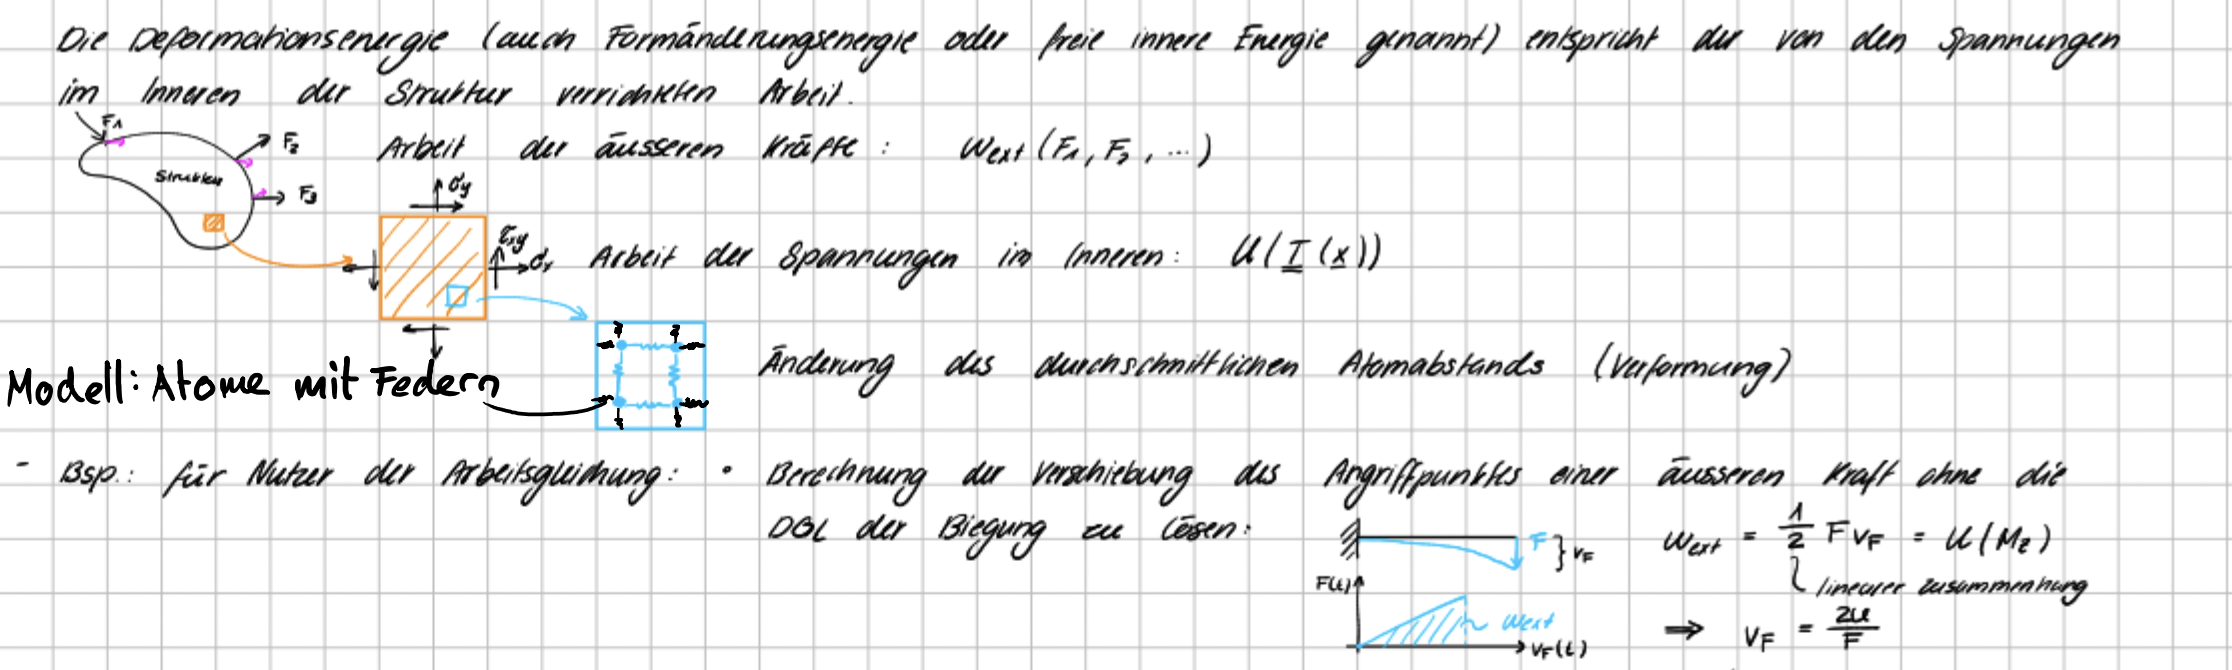 Die Deformationsenergie (auch Formänderungsenergie oder freie innere Energie genannt) entspricht der von den Spannungen
im Inneren der Struktur verrichteten Arbeit.
F₁
F₂
Struktur
F₃
Arbeit der äusseren Kräfte : W_ext (F₁, F₂, ...)
σ_y
τ_xy
σ_x
Arbeit der Spannungen im Inneren: U(T(x))
Änderung des durchschnittlichen Atomabstands (Verformung)
Modell: Atome mit Federn
- Bsp.: für Nutzen der Arbeitsgleichung: • Berechnung der Verschiebung des Angriffpunktes einer äusseren Kraft ohne die
DGL der Biegung zu lösen:
F } v_F
W_ext = 1/2 F v_F = U(M_z)
linearer Zusammenhang
F(t)
W_ext
v_F(t)
⇒ v_F = 2U/F